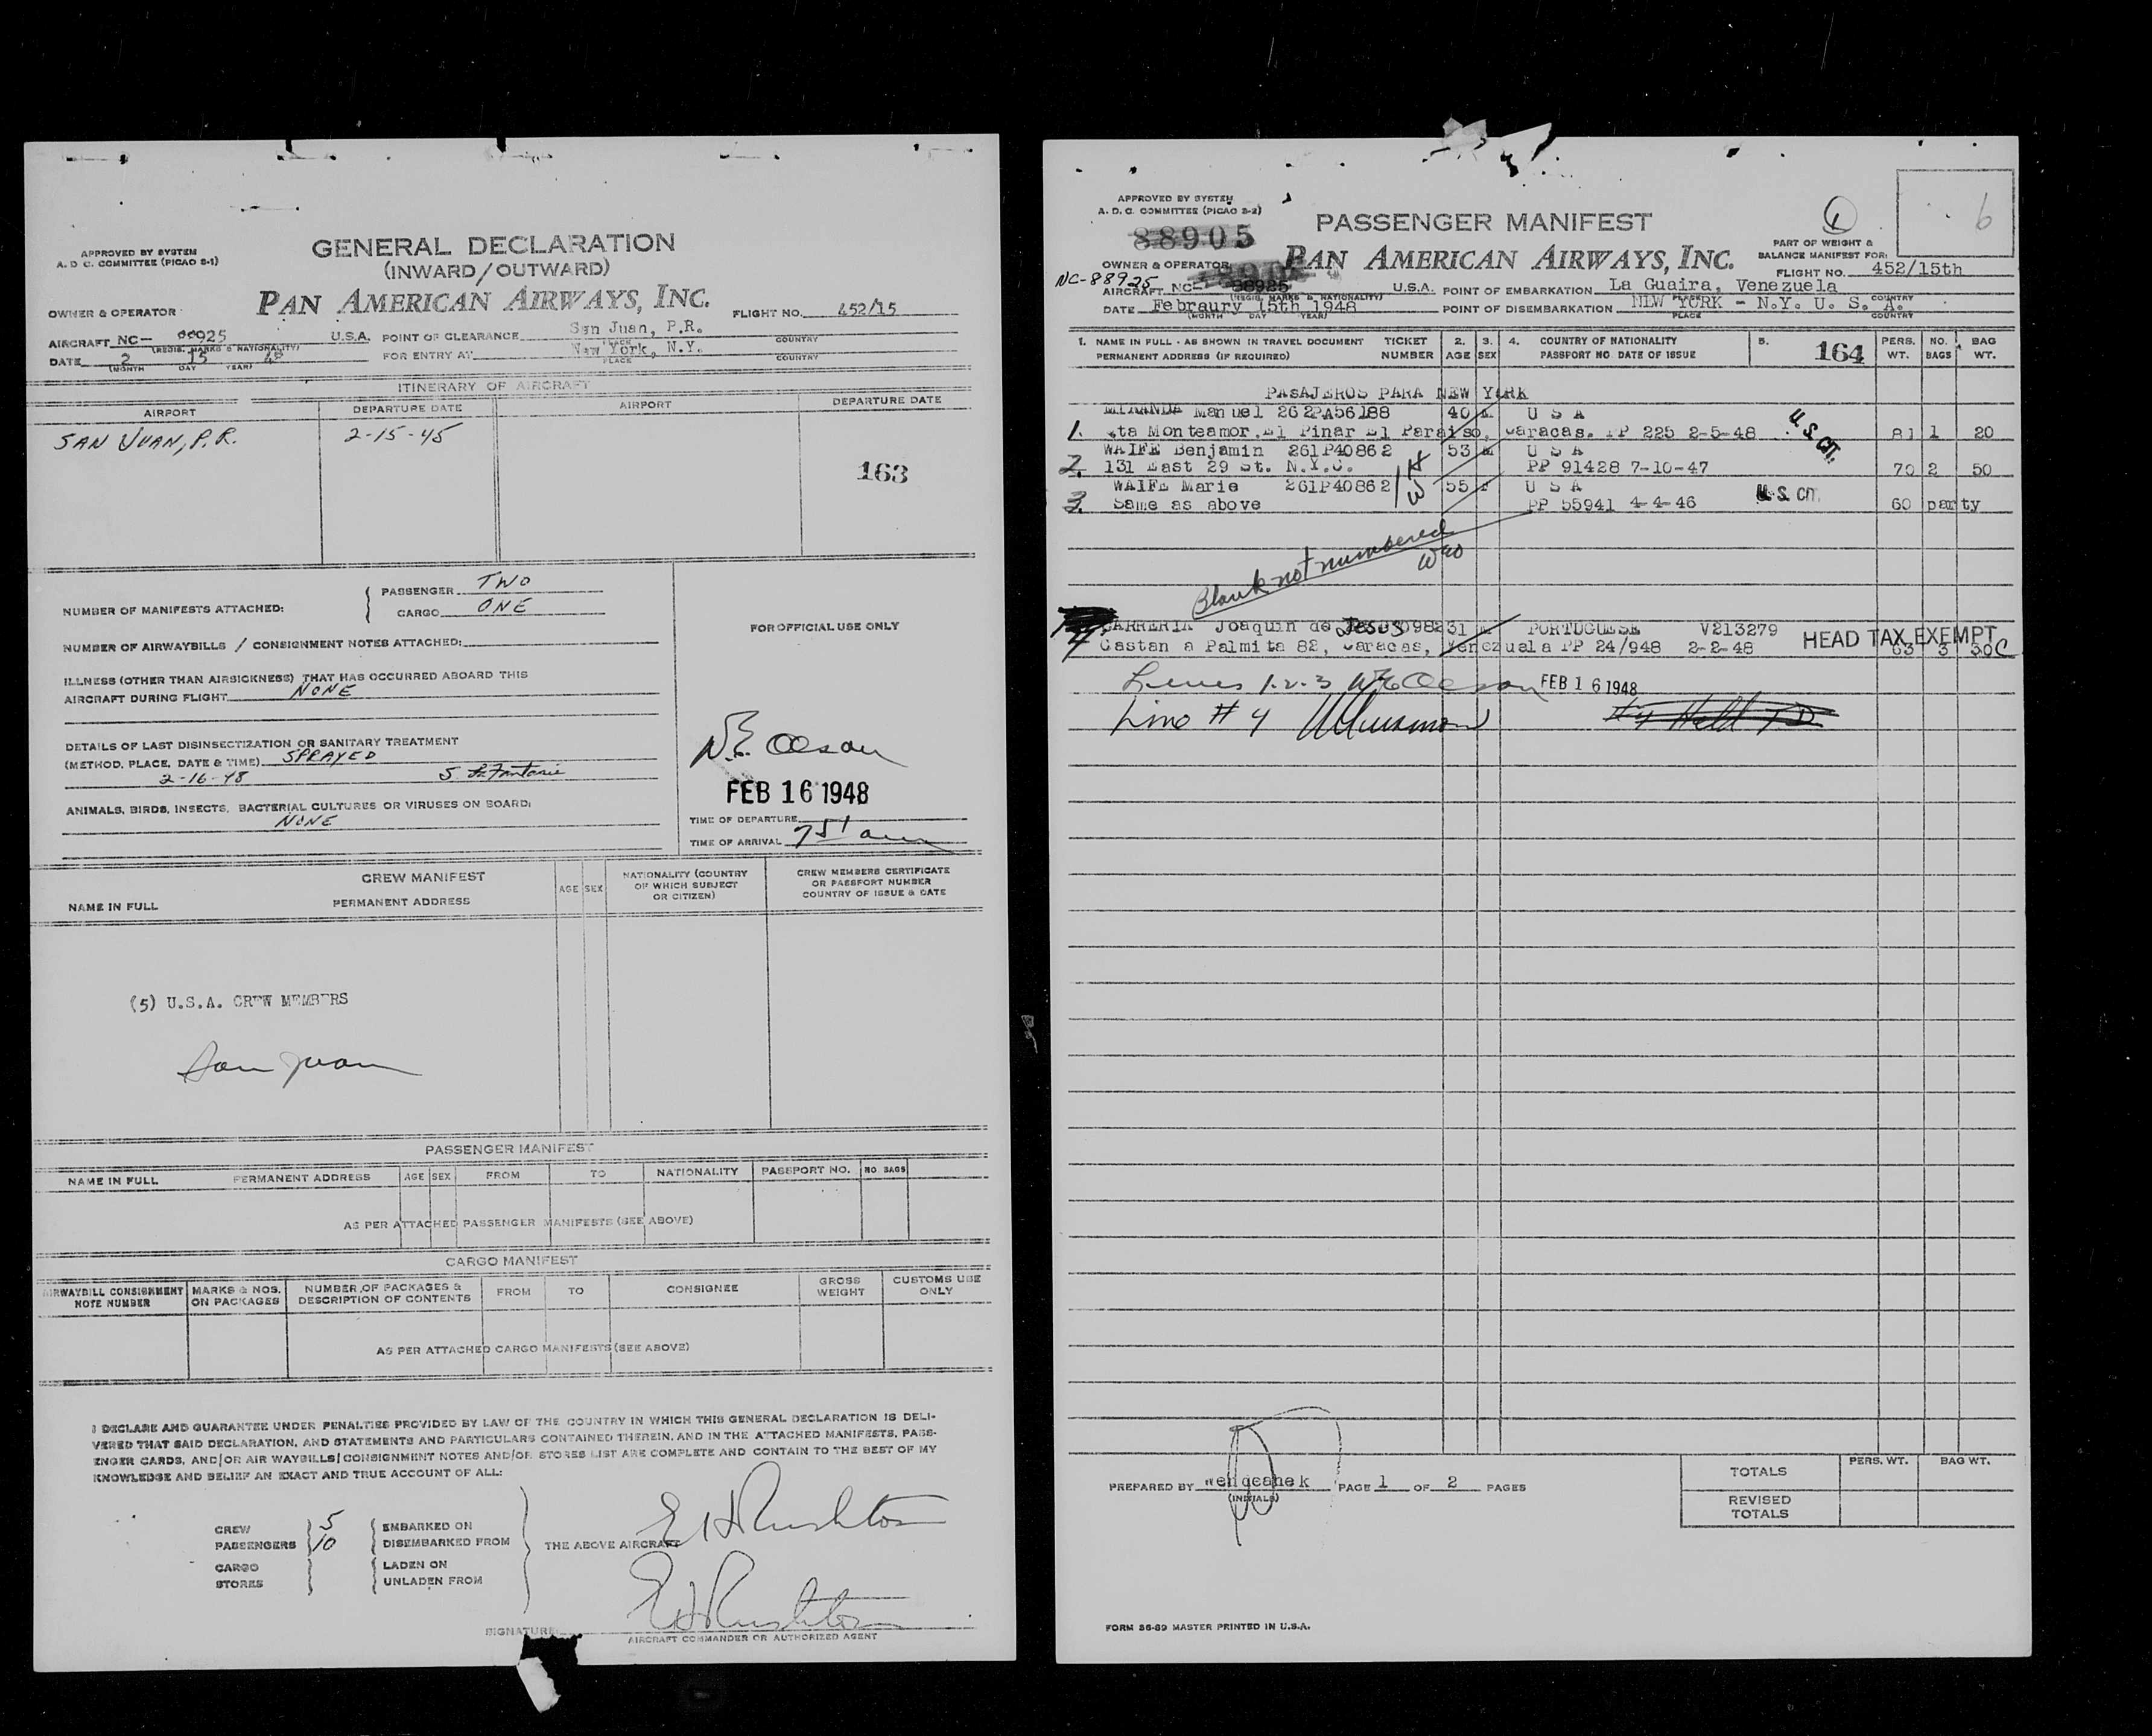 APPROVED BY SYSTEM
A. D. C. COMMITTEE (PICAO S-1)
GENERAL DECLARATION
(INWARD/OUTWARD)
PAN AMERICAN AIRWAYS, INC.
OWNER & OPERATOR
FLIGHT NO. 452/15
AIRCRAFT NC- 88925 U.S.A.
(REGIS. MARKS & NATIONALITY)
POINT OF CLEARANCE San Juan, P.R.
PLACE COUNTRY
DATE 2 15 48
(MONTH DAY YEAR)
FOR ENTRY AT New York, N.Y.
PLACE COUNTRY
ITINERARY OF AIRCRAFT
AIRPORT DEPARTURE DATE AIRPORT DEPARTURE DATE
SAN JUAN, P.R. 2-15-45
163
NUMBER OF MANIFESTS ATTACHED:
PASSENGER TWO
CARGO ONE
NUMBER OF AIRWAYBILLS / CONSIGNMENT NOTES ATTACHED:
ILLNESS (OTHER THAN AIRSICKNESS) THAT HAS OCCURRED ABOARD THIS
AIRCRAFT DURING FLIGHT NONE
DETAILS OF LAST DISINSECTIZATION OR SANITARY TREATMENT
(METHOD, PLACE, DATE & TIME) SPRAYED
2-16-48
ANIMALS, BIRDS, INSECTS, BACTERIAL CULTURES OR VIRUSES ON BOARD:
NONE
FOR OFFICIAL USE ONLY
W.E. Olson
FEB 16 1948
TIME OF DEPARTURE
TIME OF ARRIVAL 751 am
CREW MANIFEST
NAME IN FULL PERMANENT ADDRESS AGE SEX
NATIONALITY (COUNTRY OF WHICH SUBJECT OR CITIZEN)
CREW MEMBERS CERTIFICATE OR PASSPORT NUMBER COUNTRY OF ISSUE & DATE
(5) U.S.A. CREW MEMBERS
San Juan
PASSENGER MANIFEST
NAME IN FULL PERMANENT ADDRESS AGE SEX FROM TO NATIONALITY PASSPORT NO. NO. BAGS
AS PER ATTACHED PASSENGER MANIFESTS (SEE ABOVE)
CARGO MANIFEST
AIRWAYBILL CONSIGNMENT NOTE NUMBER
MARKS & NOS. ON PACKAGES
NUMBER OF PACKAGES & DESCRIPTION OF CONTENTS
FROM TO CONSIGNEE
GROSS WEIGHT
CUSTOMS USE ONLY
AS PER ATTACHED CARGO MANIFESTS (SEE ABOVE)
I DECLARE AND GUARANTEE UNDER PENALTIES PROVIDED BY LAW OF THE COUNTRY IN WHICH THIS GENERAL DECLARATION IS DELI-
VERED THAT SAID DECLARATION, AND STATEMENTS AND PARTICULARS CONTAINED THEREIN, AND IN THE ATTACHED MANIFESTS, PASS-
ENGER CARDS, AND/OR AIR WAYBILLS/CONSIGNMENT NOTES AND/OR STORES LIST ARE COMPLETE AND CONTAIN TO THE BEST OF MY
KNOWLEDGE AND BELIEF AN EXACT AND TRUE ACCOUNT OF ALL:
CREW 5 EMBARKED ON
PASSENGERS 10 DISEMBARKED FROM
THE ABOVE AIRCRAFT
CARGO LADEN ON
STORES UNLADEN FROM
E H Rushton
E H Rushton
SIGNATURE:
AIRCRAFT COMMANDER OR AUTHORIZED AGENT
APPROVED BY SYSTEM
A. D. C. COMMITTEE (PICAO S-2)
PASSENGER MANIFEST
6
88905
PAN AMERICAN AIRWAYS, INC.
PART OF WEIGHT &
BALANCE MANIFEST FOR:
OWNER & OPERATOR
FLIGHT NO. 452/15th
NC-88925
AIRCRAFT NC- 88925 U.S.A.
(REGIS. MARKS & NATIONALITY)
POINT OF EMBARKATION La Guaira, Venezuela
PLACE COUNTRY
DATE Febraury 15th 1948
(MONTH DAY YEAR)
POINT OF DISEMBARKATION NEW YORK - N.Y. U. S. A.
PLACE COUNTRY
1. NAME IN FULL - AS SHOWN IN TRAVEL DOCUMENT TICKET 2. 3. 4. COUNTRY OF NATIONALITY 5. 164 PERS. NO. BAG
PERMANENT ADDRESS (IF REQUIRED) NUMBER AGE SEX PASSPORT NO. DATE OF ISSUE WT. BAGS WT.
PASAJEROS PARA NEW YORK
MIRANDA Manuel 262PA56188 40 M U S A
1. Qta Monteamor, El Pinar El Paraiso, Caracas. PP 225 2-5-48 U.S. CIT. 81 1 20
WAIFE Benjamin 261P40862 53 M U S A
2. 131 East 29 St. N.Y.C. H PP 91428 7-10-47 70 2 50
WAIFE Marie 261P40862 W 55 F U S A
3. Same as above PP 55941 4-4-46 U.S. CIT. 60 party
Blank not numbered
WEO
CARRERIA Joaquin de Jesus 098231 M PORTUGUESE V213279
4 Castan a Palmita 82, Caracas, Venezuela PP 24/948 2-2-48 HEAD TAX EXEMPT 63 3 30
Lines 1-2-3 WE Olson FEB 16 1948
Line # 4
#4 Held
PREPARED BY
(INITIALS)
PAGE 1 OF 2 PAGES
PERS. WT. BAG WT.
TOTALS
REVISED TOTALS
FORM 86-89 MASTER PRINTED IN U.S.A.